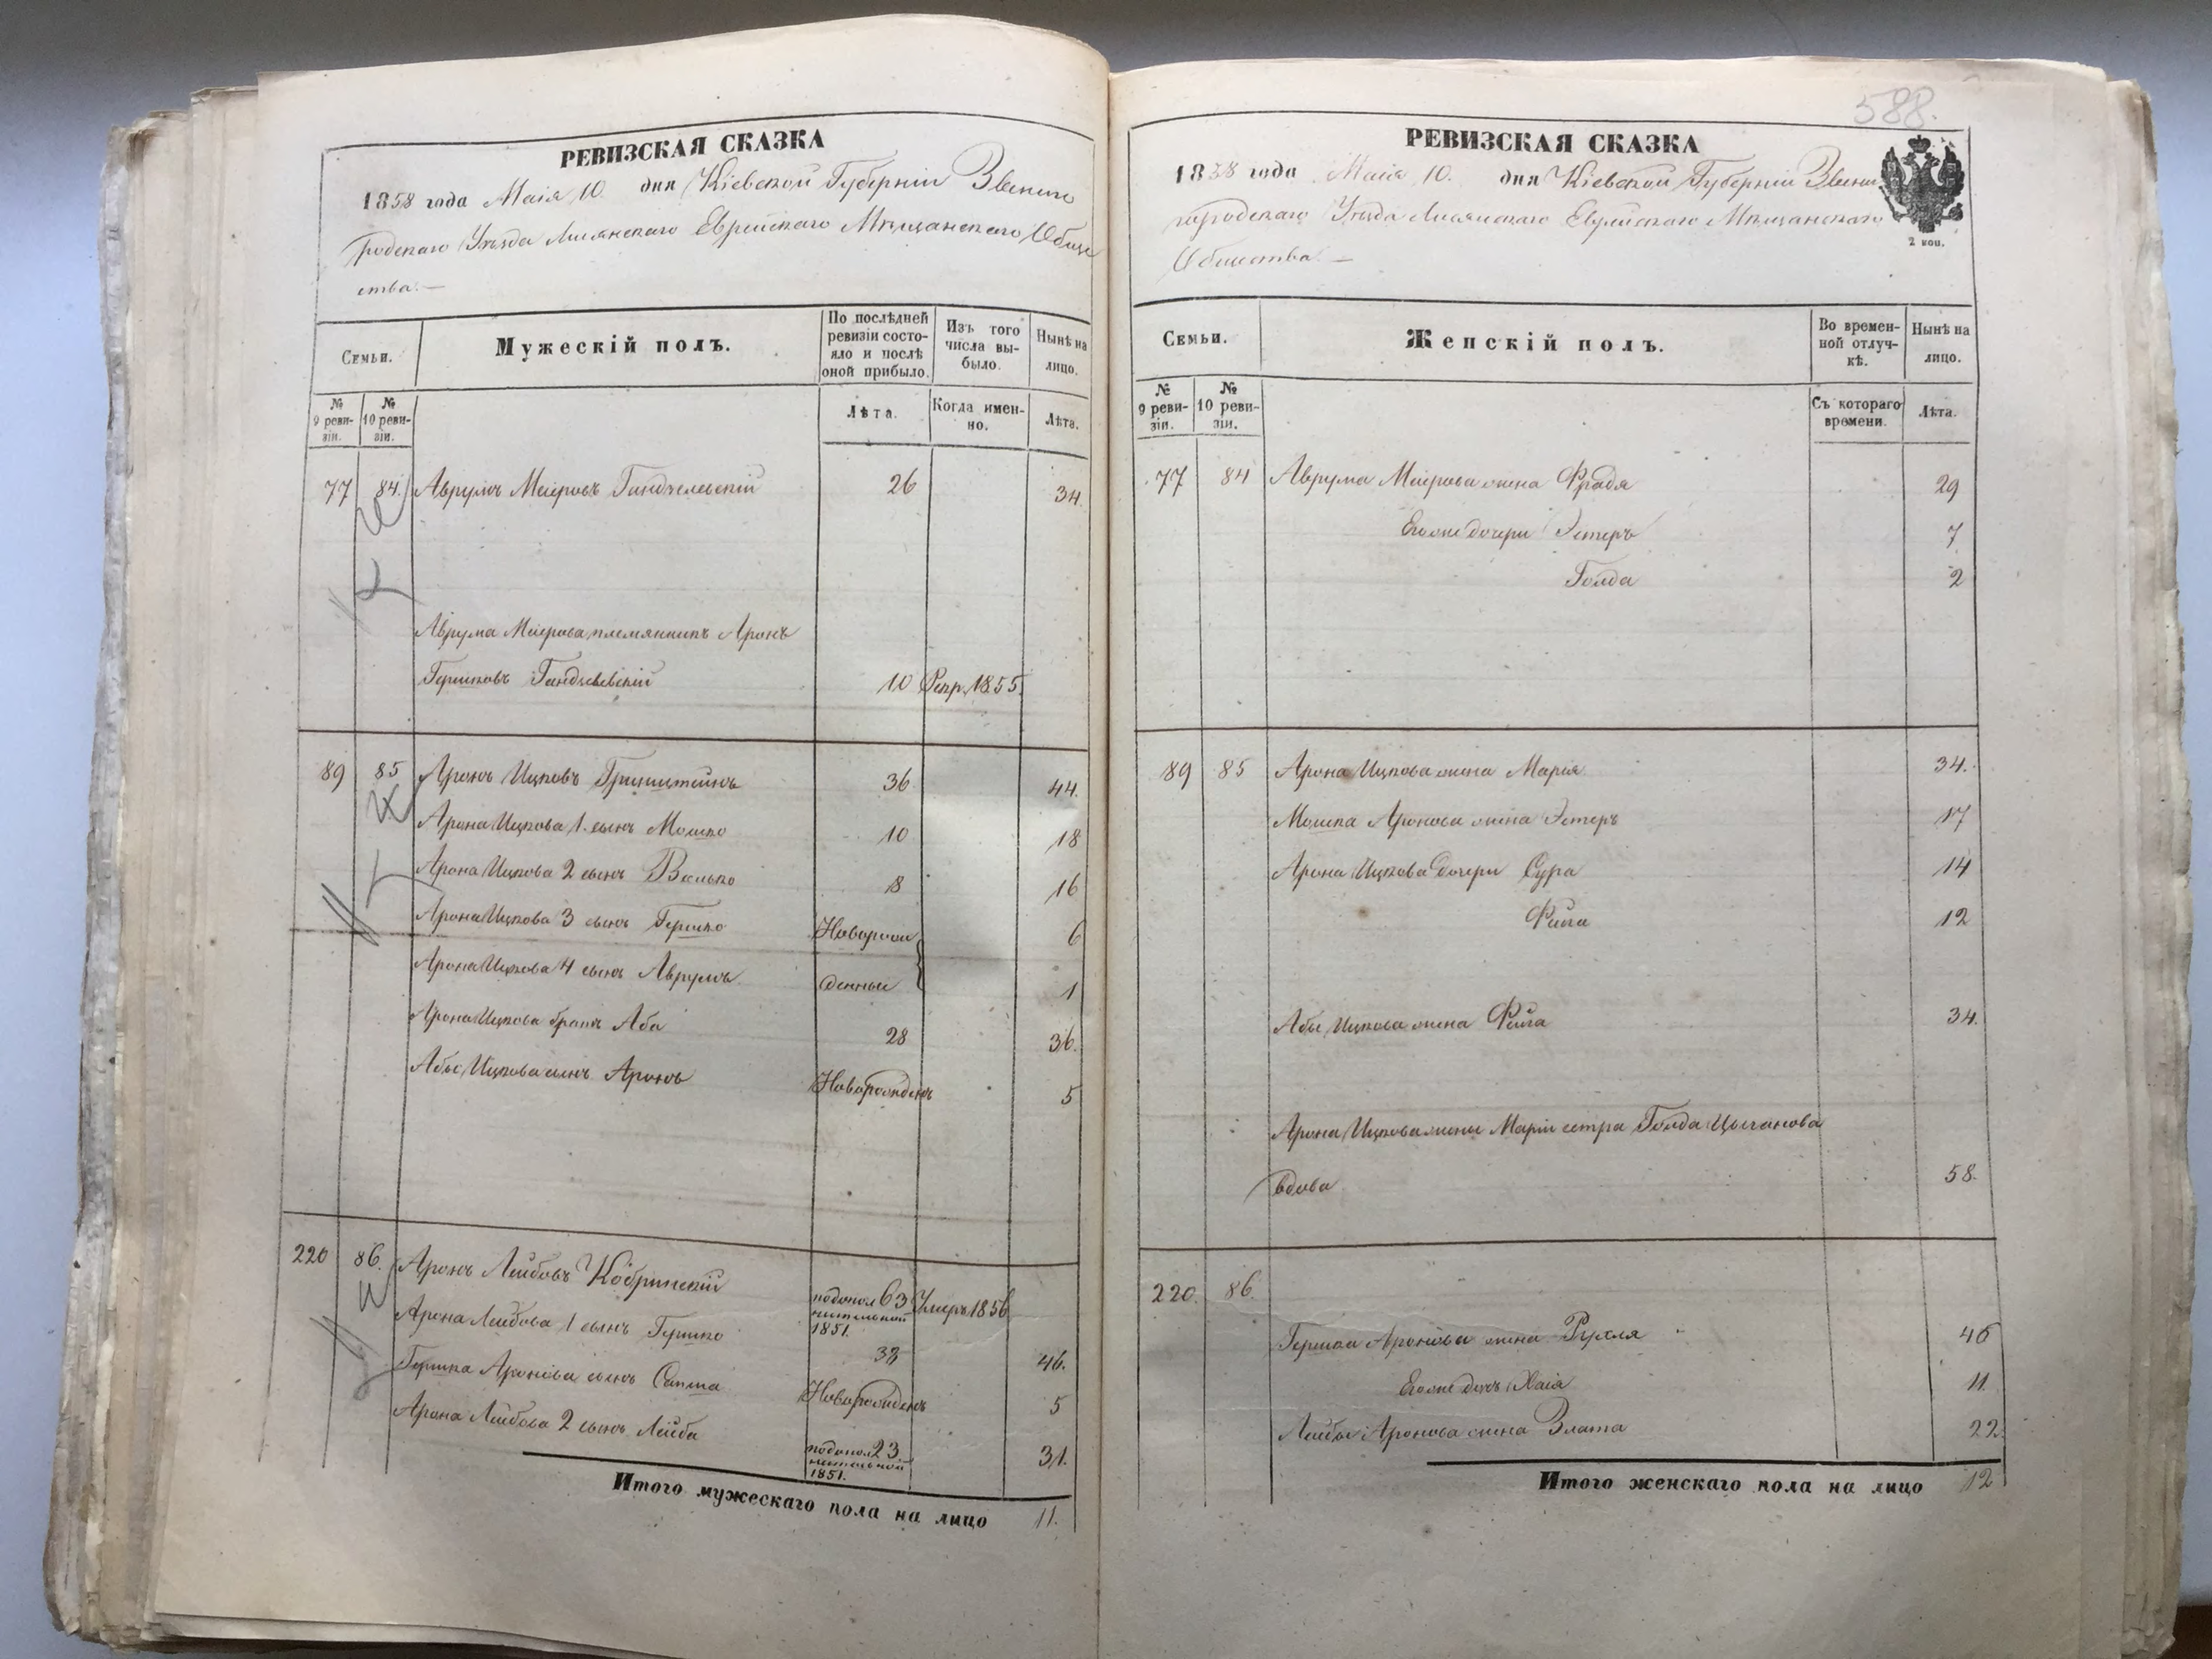 588.
РЕВИЗСКАЯ СКАЗКА
1858 года Маія 10. дня Кіевской Губерніи Звениго
родскаго Уѣзда Лисянскаго Еврейскаго Мѣщанскаго Обще
ства.—
Семьи.
Мужескій полъ.
По послѣдней
ревизіи состо-
яло и послѣ
оной прибыло.
Изъ того
числа вы-
было.
Нынѣ на
лицо.
№
9 реви-
зіи.
№
10 реви-
зіи.
Лѣта.
Когда имен-
но.
Лѣта.
77 84. Аврумъ Меіровъ 26 34.
Аврума Меірова племянникъ Аронъ
Гершковъ 10 Рекр. 1855.
89 85 Аронъ Ицковъ Гринштейнъ 36 44.
Арона Ицкова 1. сынъ Мошко 10 18
Арона Ицкова 2 сынъ Васько 8 16
Арона Ицкова 3 сынъ Гершко Новорож 6
Арона Ицкова 4 сынъ Аврумъ денные 1
Арона Ицкова братъ Аба 28 36.
Абы Ицкова сынъ Аронъ Новорожденъ 5
220 86. Аронъ Лейбовъ Кобринскій подопол 63 Умеръ 1856
нительной
1851.
Арона Лейбова 1 сынъ Гершко 38 46.
Гершка Аронова сынъ Сапша Новорожденъ 5
Арона Лейбова 2 сынъ Лейба подопол 23 31.
нительной
1851.
Итого мужескаго пола на лицо 11.
РЕВИЗСКАЯ СКАЗКА
1858 года Маія 10. дня Кіевской Губерніи Звени
городскаго Уѣзда Лисянскаго Еврейскаго Мѣщанскаго
Общества.—
2 коп.
Семьи.
Женскій полъ.
Во времен-
ной отлуч-
кѣ.
Нынѣ на
лицо.
№
9 реви-
зіи.
№
10 реви-
зіи.
Съ котораго
времени.
Лѣта.
77 84 Аврума Меірова жена Фрадя 29
Его же дочери Эстеръ 7
Голда 2
89 85 Арона Ицкова жена Марія 34.
Мошка Аронова жена Эстеръ 17
Арона Ицкова дочери Сура 14
Фейга 12
Абы Ицкова жена Фейга 34.
Арона Ицкова жены Маріи сетра Голда Цыганова
вдова 58.
220. 86.
Гершка Аронова жена Рухля 45
Его же дочь Хаія 11
Лейбы Аронова жена Злата 22.
Итого женскаго пола на лицо 12